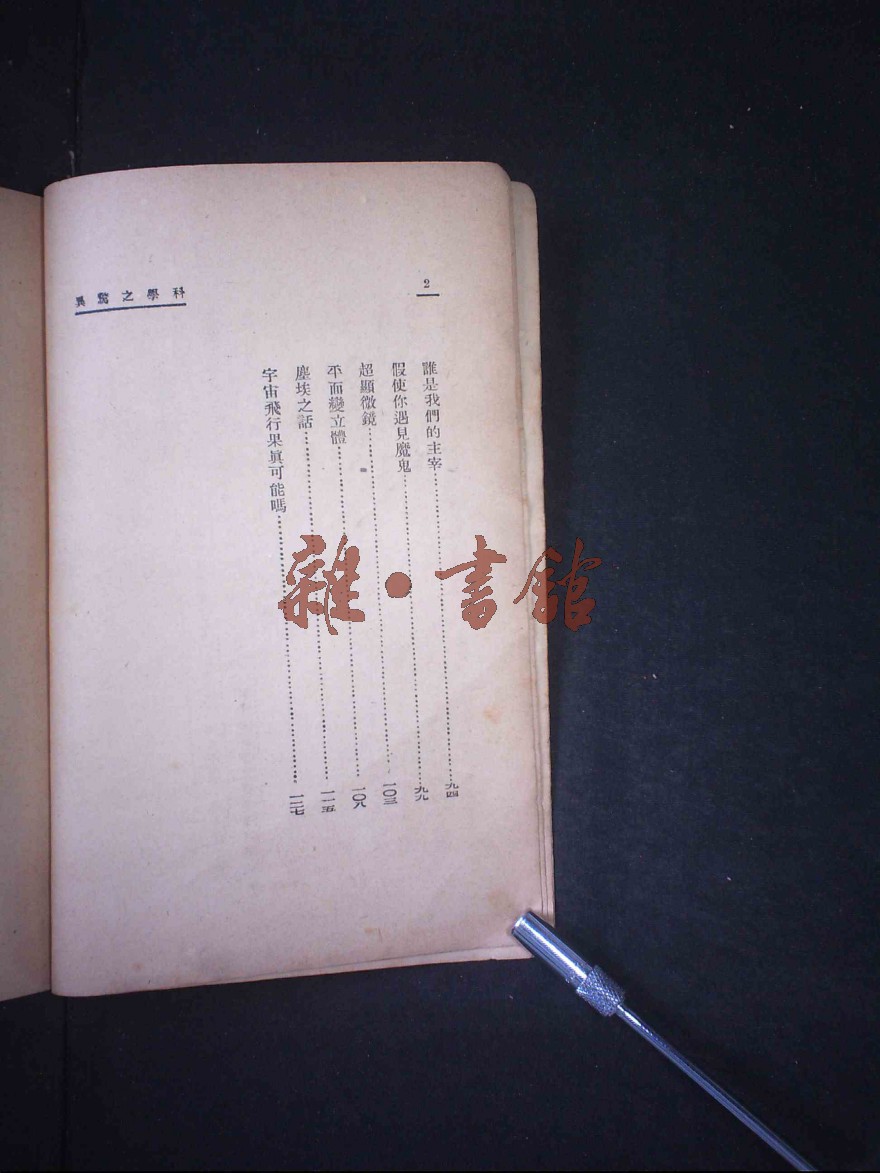 2
科學之驚異
誰是我們的主宰……九四
假使你遇見魔鬼……九九
超顯微鏡……一〇三
平面變立體……一〇八
塵埃之話……一一五
宇宙飛行果眞可能嗎……一二七
雜·書館